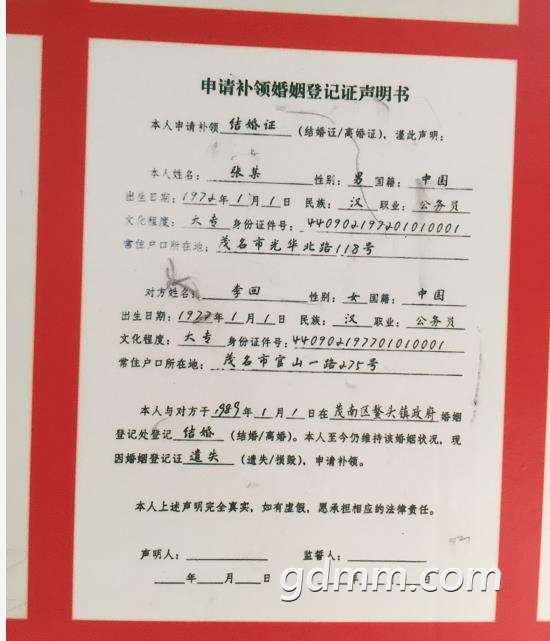 申请补领婚姻登记证声明书
本人申请补领 结婚证 (结婚证/离婚证),谨此声明:
本人姓名: 张某 性别: 男 国籍: 中国
出生日期: 1972 年 1 月 1 日 民族: 汉 职业: 公务员
文化程度: 大专 身份证件号: 440902197201010001
常住户口所在地: 茂名市光华北路118号
对方姓名: 李回 性别: 女 国籍: 中国
出生日期: 1977 年 1 月 1 日 民族: 汉 职业: 公务员
文化程度: 大专 身份证件号: 440902197701010001
常住户口所在地: 茂名市官山一路275号
本人与对方于 1989 年 1 月 1 日在 茂南区鳌头镇政府 婚姻
登记处登记 结婚 (结婚/离婚)。本人至今仍维持该婚姻状况,现
因婚姻登记证 遗失 (遗失/损毁),申请补领。
本人上述声明完全真实,如有虚假,愿承担相应的法律责任。
声明人: 监誓人:
年 月 日 年 月 日
gdmm.com